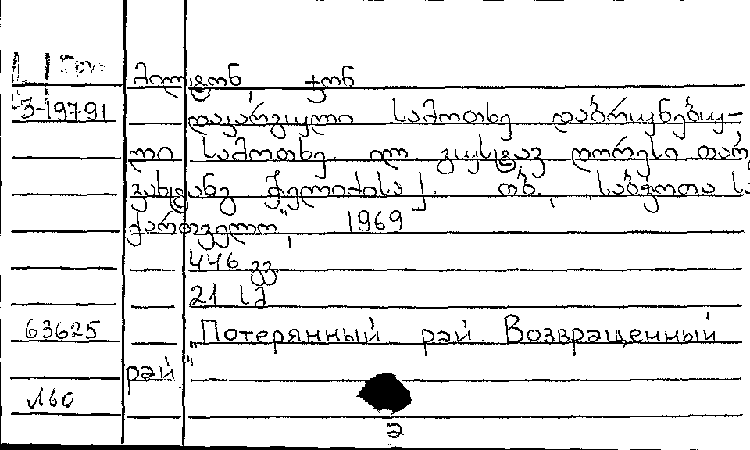 მილტონ, ჯონ
3-19791
დაკარგული სამოთხე დაბრუნებუ-
ლი სამოთხე. ილ. გუსტავ დორესი თარგ
ვახტანგ ჭელიძისა]. თბ., საბჭოთა სა
ქართველო", 1969
446 გვ
21 სმ
63625
„Потерянный рай Возвращенный
рай"
160
ə